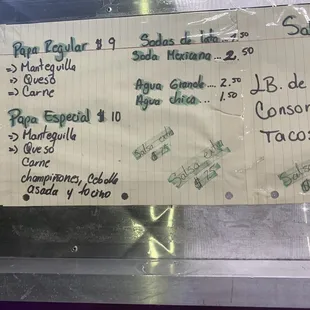 Papa Regular $ 9
=> Mantequilla
=> Queso
=> Carne
Papa Especial $ 10
=> Mantequilla
=> Queso
Carne
champiñones, Cebolla
asada y tocino
Sodas de lata... .50
Soda Mexicana... 2.50
Agua Grande... 2.50
Agua chica... 1.50
Salsa extra
Salsa extra
$
Salsa
Sa
LB. de
Conso
Tacos